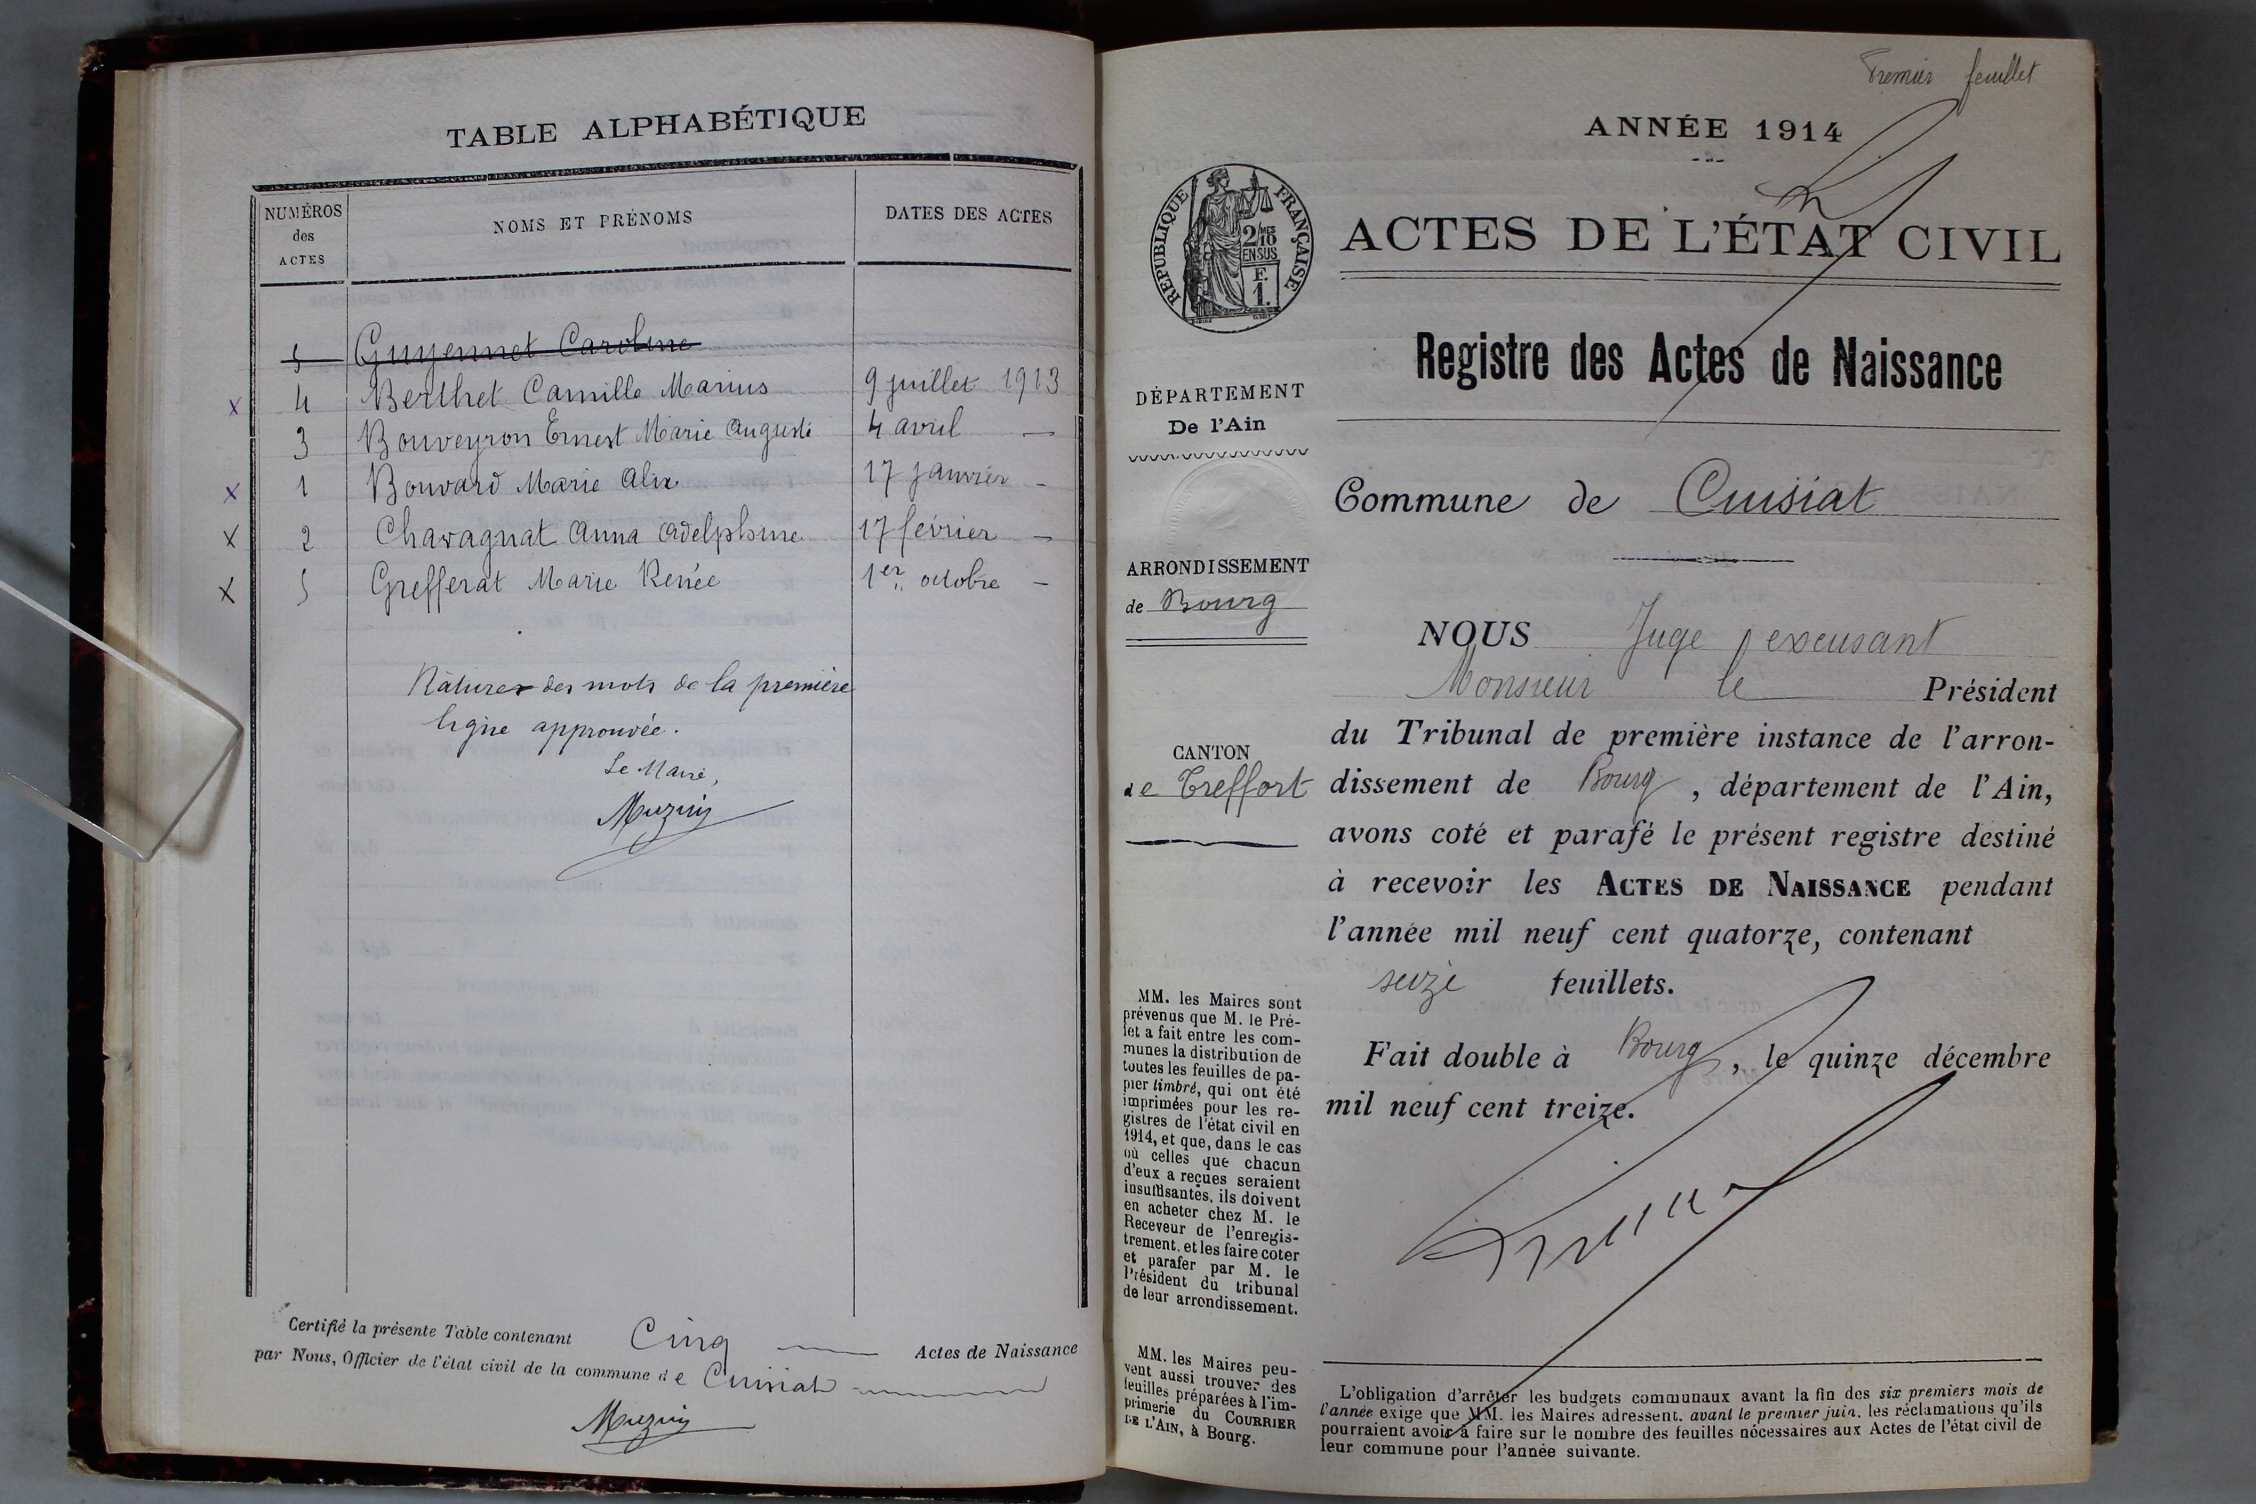 TABLE ALPHABÉTIQUE
NUMÉROS des ACTES
NOMS ET PRÉNOMS
DATES DES ACTES
5 Guyennet Caroline
x 4 Berthet Camille Marius 9 juillet 1913
3 Bouveyron Ernest Marie Auguste 4 avril —
x 1 Bouvard Marie Alix 17 janvier -
x 2 Chavagnat Anna Adelphine 17 février —
x 5 Grefferat Marie Renée 1er octobre —
des mots de la première
ligne approuvée.
Le Maire,
Certifié la présente Table contenant Cinq Actes de Naissance
par Nous, Officier de l'état civil de la commune de Cuisiat
Premier feuillet
ANNÉE 1914
RÉPUBLIQUE FRANÇAISE
2/10 EN SUS
F.
1.
ACTES DE L'ÉTAT CIVIL
Registre des Actes de Naissance
DÉPARTEMENT
De l'Ain
Commune de Cuisiat
ARRONDISSEMENT
de Bourg
NOUS Juge excusant
Monsieur le Président
du Tribunal de première instance de l'arron-
CANTON
de Treffort
dissement de Bourg, département de l'Ain,
avons coté et parafé le présent registre destiné
à recevoir les ACTES DE NAISSANCE pendant
l'année mil neuf cent quatorze, contenant
seize feuillets.
Fait double à Bourg, le quinze décembre
mil neuf cent treize.
MM. les Maires sont
prévenus que M. le Pré-
fet a fait entre les com-
munes la distribution de
toutes les feuilles de pa-
pier timbré, qui ont été
imprimées pour les re-
gistres de l'état civil en
1914, et que, dans le cas
où celles que chacun
d'eux a reçues seraient
insuffisantes, ils doivent
en acheter chez M. le
Receveur de l'enregis-
trement, et les faire coter
et parafer par M. le
Président du tribunal
de leur arrondissement.
MM. les Maires peu-
vent aussi trouver des
feuilles préparées à l'im-
primerie du COURRIER
DE L'AIN, à Bourg.
L'obligation d'arrêter les budgets communaux avant la fin des six premiers mois de
l'année exige que MM. les Maires adressent, avant le premier juin, les réclamations qu'ils
pourraient avoir à faire sur le nombre des feuilles nécessaires aux Actes de l'état civil de
leur commune pour l'année suivante.